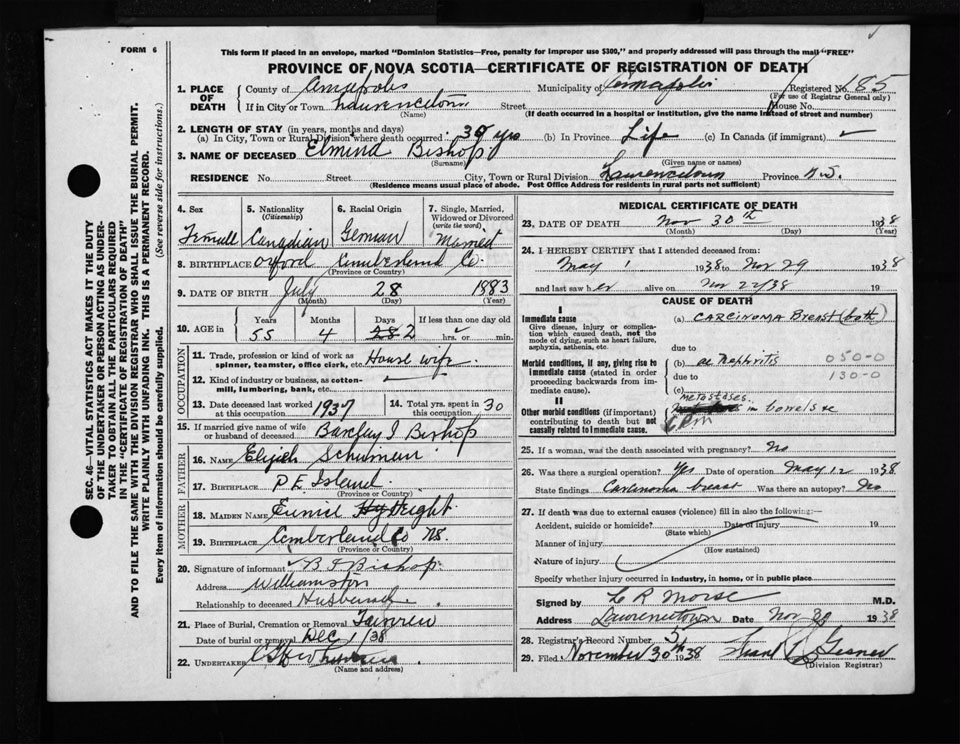 FORM 6
This form if placed in an envelope, marked "Dominion Statistics—Free, penalty for improper use $300," and properly addressed will pass through the mail "FREE"
PROVINCE OF NOVA SCOTIA—CERTIFICATE OF REGISTRATION OF DEATH
1. PLACE OF DEATH County of Annapolis Municipality of Annapolis Registered No. 185
(For use of Registrar General only)
If in City or Town Lawrencetown Street House No.
(Name) (If death occurred in a hospital or institution, give the name instead of street and number)
2. LENGTH OF STAY (in years, months and days)
(a) In City, Town or Rural Division where death occurred 39 yrs (b) In Province Life (c) In Canada (if immigrant)
3. NAME OF DECEASED Elmina Bishop
(Surname) (Given name or names)
RESIDENCE No. Street City, Town or Rural Division Lawrencetown Province N.S.
(Residence means usual place of abode. Post Office Address for residents in rural parts not sufficient)
SEC. 46—VITAL STATISTICS ACT MAKES IT THE DUTY
OF THE UNDERTAKER OR PERSON ACTING AS UNDER-
TAKER TO OBTAIN ALL THE PARTICULARS REQUIRED
IN THE "CERTIFICATE OF REGISTRATION OF DEATH"
AND TO FILE THE SAME WITH THE DIVISION REGISTRAR WHO SHALL ISSUE THE BURIAL PERMIT.
WRITE PLAINLY WITH UNFADING INK. THIS IS A PERMANENT RECORD.
Every item of information should be carefully supplied. (See reverse side for instructions.)
4. Sex 5. Nationality (Citizenship) 6. Racial Origin 7. Single, Married, Widowed or Divorced (write the word)
Female Canadian German Married
8. BIRTHPLACE Oxford Cumberland Co.
(Province or Country)
9. DATE OF BIRTH July 28 1883
(Month) (Day) (Year)
10. AGE in Years Months Days If less than one day old
55 4 2 hrs. or min.
OCCUPATION
11. Trade, profession or kind of work as spinner, teamster, office clerk, etc. House wife
12. Kind of industry or business, as cotton-mill, lumbering, bank, etc.
13. Date deceased last worked at this occupation 1937 14. Total yrs. spent in this occupation 30
15. If married give name of wife or husband of deceased Bishop
FATHER
16. Name Elijah Schurman
17. BIRTHPLACE P.E. Island
(Province or Country)
MOTHER
18. MAIDEN NAME Eunice Height
19. BIRTHPLACE Cumberland Co NS.
(Province or Country)
20. Signature of informant Bishop
Address Williamston
Relationship to deceased Husband
21. Place of Burial, Cremation or Removal
Date of burial or removal Dec 1/38
22. UNDERTAKER
(Name and address)
MEDICAL CERTIFICATE OF DEATH
23. DATE OF DEATH Nov 30th 1938
(Month) (Day) (Year)
24. I HEREBY CERTIFY that I attended deceased from:
May 1 1938 to Nov 29 1938
and last saw her alive on Nov 29/38 19
CAUSE OF DEATH
I
Immediate cause (a) CARCINOMA Breast (both)
Give disease, injury or complication which caused death, not the mode of dying, such as heart failure, asphyxia, asthenia, etc.
due to
Morbid conditions, if any, giving rise to immediate cause (stated in order proceeding backwards from immediate cause). (b) ac Nephritis 050-0
due to 130-0
(c)
II
Other morbid conditions (if important) contributing to death but not causally related to immediate cause. metastases in bowels &c
25. If a woman, was the death associated with pregnancy? No
26. Was there a surgical operation? Yes Date of operation May 12 1938
State findings Carcinoma breast Was there an autopsy? No
27. If death was due to external causes (violence) fill in also the following:—
Accident, suicide or homicide? Date of injury 19
(State which)
Manner of injury
(How sustained)
Nature of injury
Specify whether injury occurred in industry, in home, or in public place
Signed by L R Morse M.D.
Address Lawrencetown Date Nov 30 1938
28. Registrar's Record Number 51
29. Filed November 30th 1938 Gesner
(Division Registrar)